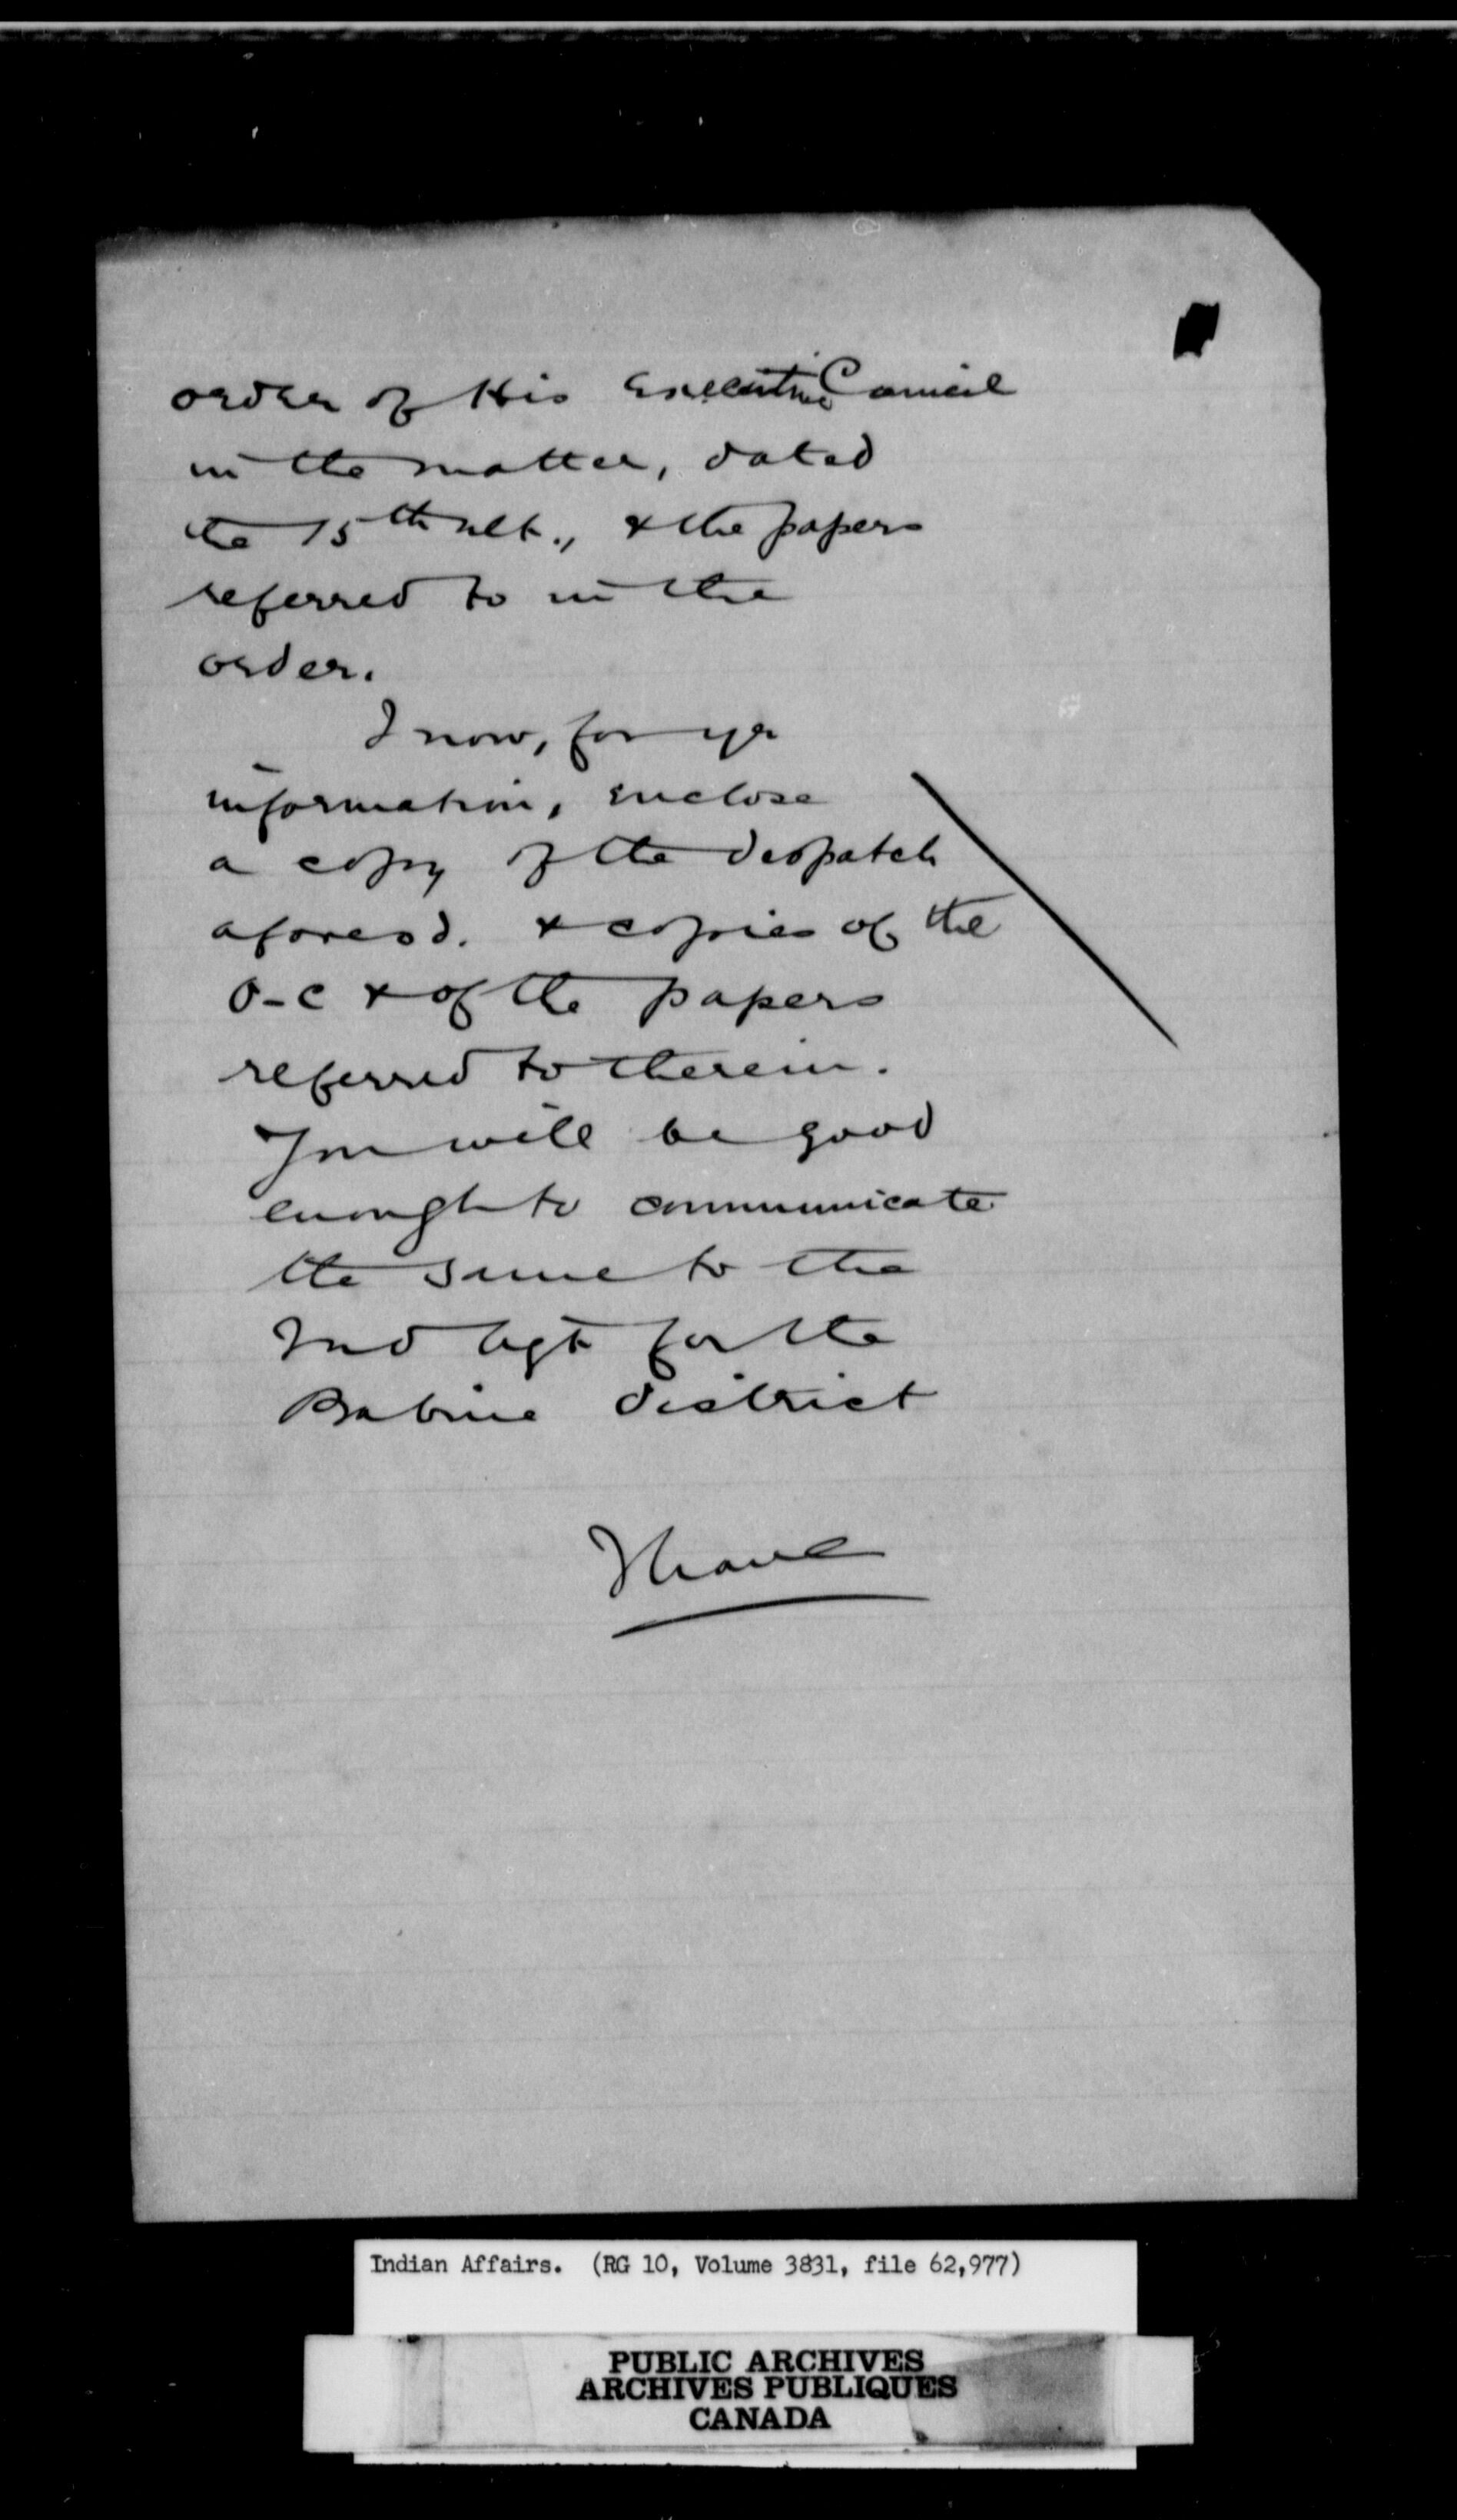 order of His Executive Council
in the matter, dated
the 15th ult., & the papers
referred to in the
order.
I now, for yr
information, enclose
a copy of the despatch
aforesd. & copies of the
O-C & of the papers
referred to therein.
You will be good
enough to communicate
the same to the
Ind Agt for the
Babine district
I have
Indian Affairs. (RG 10, Volume 3831, file 62,977)
PUBLIC ARCHIVES
ARCHIVES PUBLIQUES
CANADA